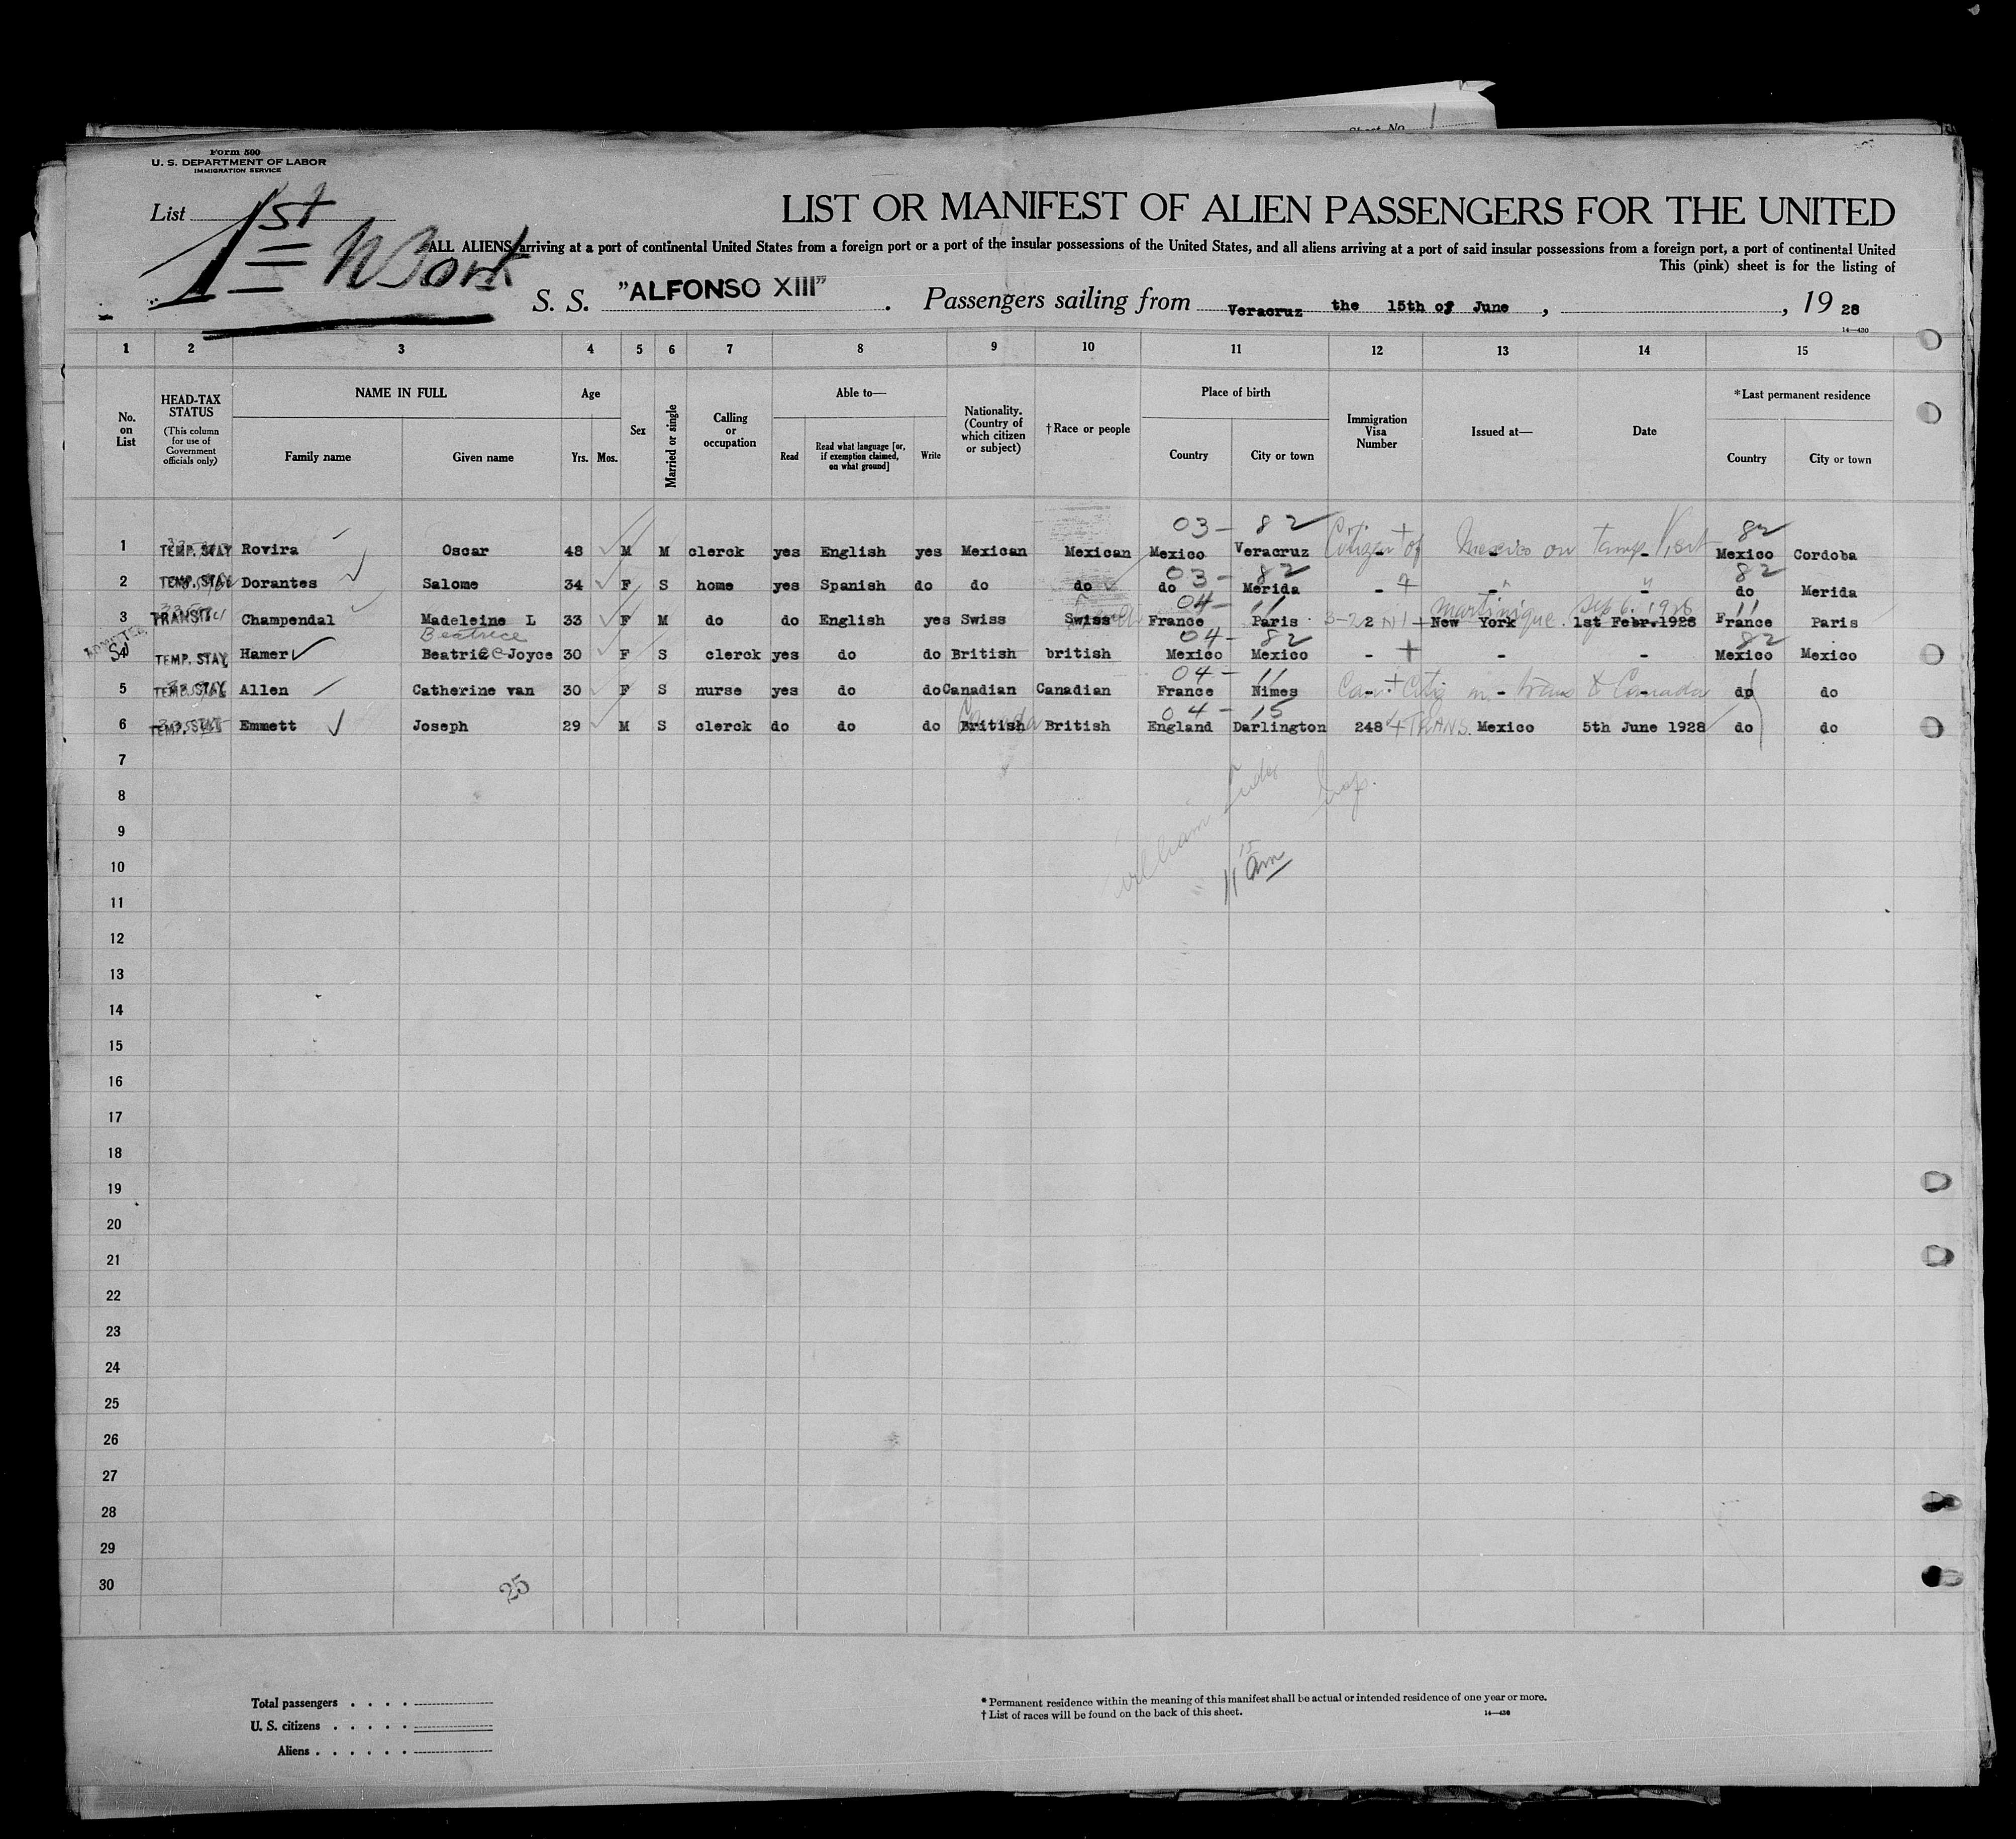 Sheet No.
Form 500
U. S. DEPARTMENT OF LABOR
IMMIGRATION SERVICE
List 1st
LIST OR MANIFEST OF ALIEN PASSENGERS FOR THE UNITED
ALL ALIENS arriving at a port of continental United States from a foreign port or a port of the insular possessions of the United States, and all aliens arriving at a port of said insular possessions from a foreign port, a port of continental United
This (pink) sheet is for the listing of
N York
S. S. "ALFONSO XIII". Passengers sailing from Veracruz the 15th of June, , 1928
14—430
1 2 3 4 5 6 7 8 9 10 11 12 13 14 15
No. on List
HEAD-TAX STATUS
(This column for use of Government officials only)
NAME IN FULL
Family name Given name
Age
Yrs. Mos.
Sex
Married or single
Calling or occupation
Able to—
Read Read what language [or, if exemption claimed, on what ground] Write
Nationality. (Country of which citizen or subject)
†Race or people
Place of birth
Country City or town
Immigration Visa Number
Issued at—
Date
*Last permanent residence
Country City or town
03- 82 82
1 TEMP. STAY Rovira Oscar 48 M M clerck yes English yes Mexican Mexican Mexico Veracruz - Citizen of - Mexico on Temp Visit - Mexico Cordoba
03- 82 82
2 TEMP. STAY Dorantes Salome 34 F S home yes Spanish do do do do Merida - " " do Merida
04- 11 Martinique Sep 6. 1928 11
3 TRANSIT Champendal Madeleine L 33 F M do do English yes Swiss Swiss France Paris 2 New York 1st Febr.1928 France Paris
Beatrice 04- 82 82
4 TEMP. STAY Hamer Beatrice Joyce 30 F S clerck yes do do British british Mexico Mexico - - - Mexico Mexico
04- 11
5 TEMP. STAY Allen Catherine van 30 F S nurse yes do do Canadian Canadian France Nimes Can. Citiz in trans to Canada do do
Canada 04- 15
6 TEMP. STAY Emmett Joseph 29 M S clerck do do do British British England Darlington 248 TRANS. Mexico 5th June 1928 do do
7
8
William Insp.
9
10
11 15 am
11
12
13
14
15
16
17
18
19
20
21
22
23
24
25
26
27
28
29
30
25
Total passengers . . . .
U. S. citizens . . . . .
Aliens . . . . . .
* Permanent residence within the meaning of this manifest shall be actual or intended residence of one year or more.
† List of races will be found on the back of this sheet.
14—430